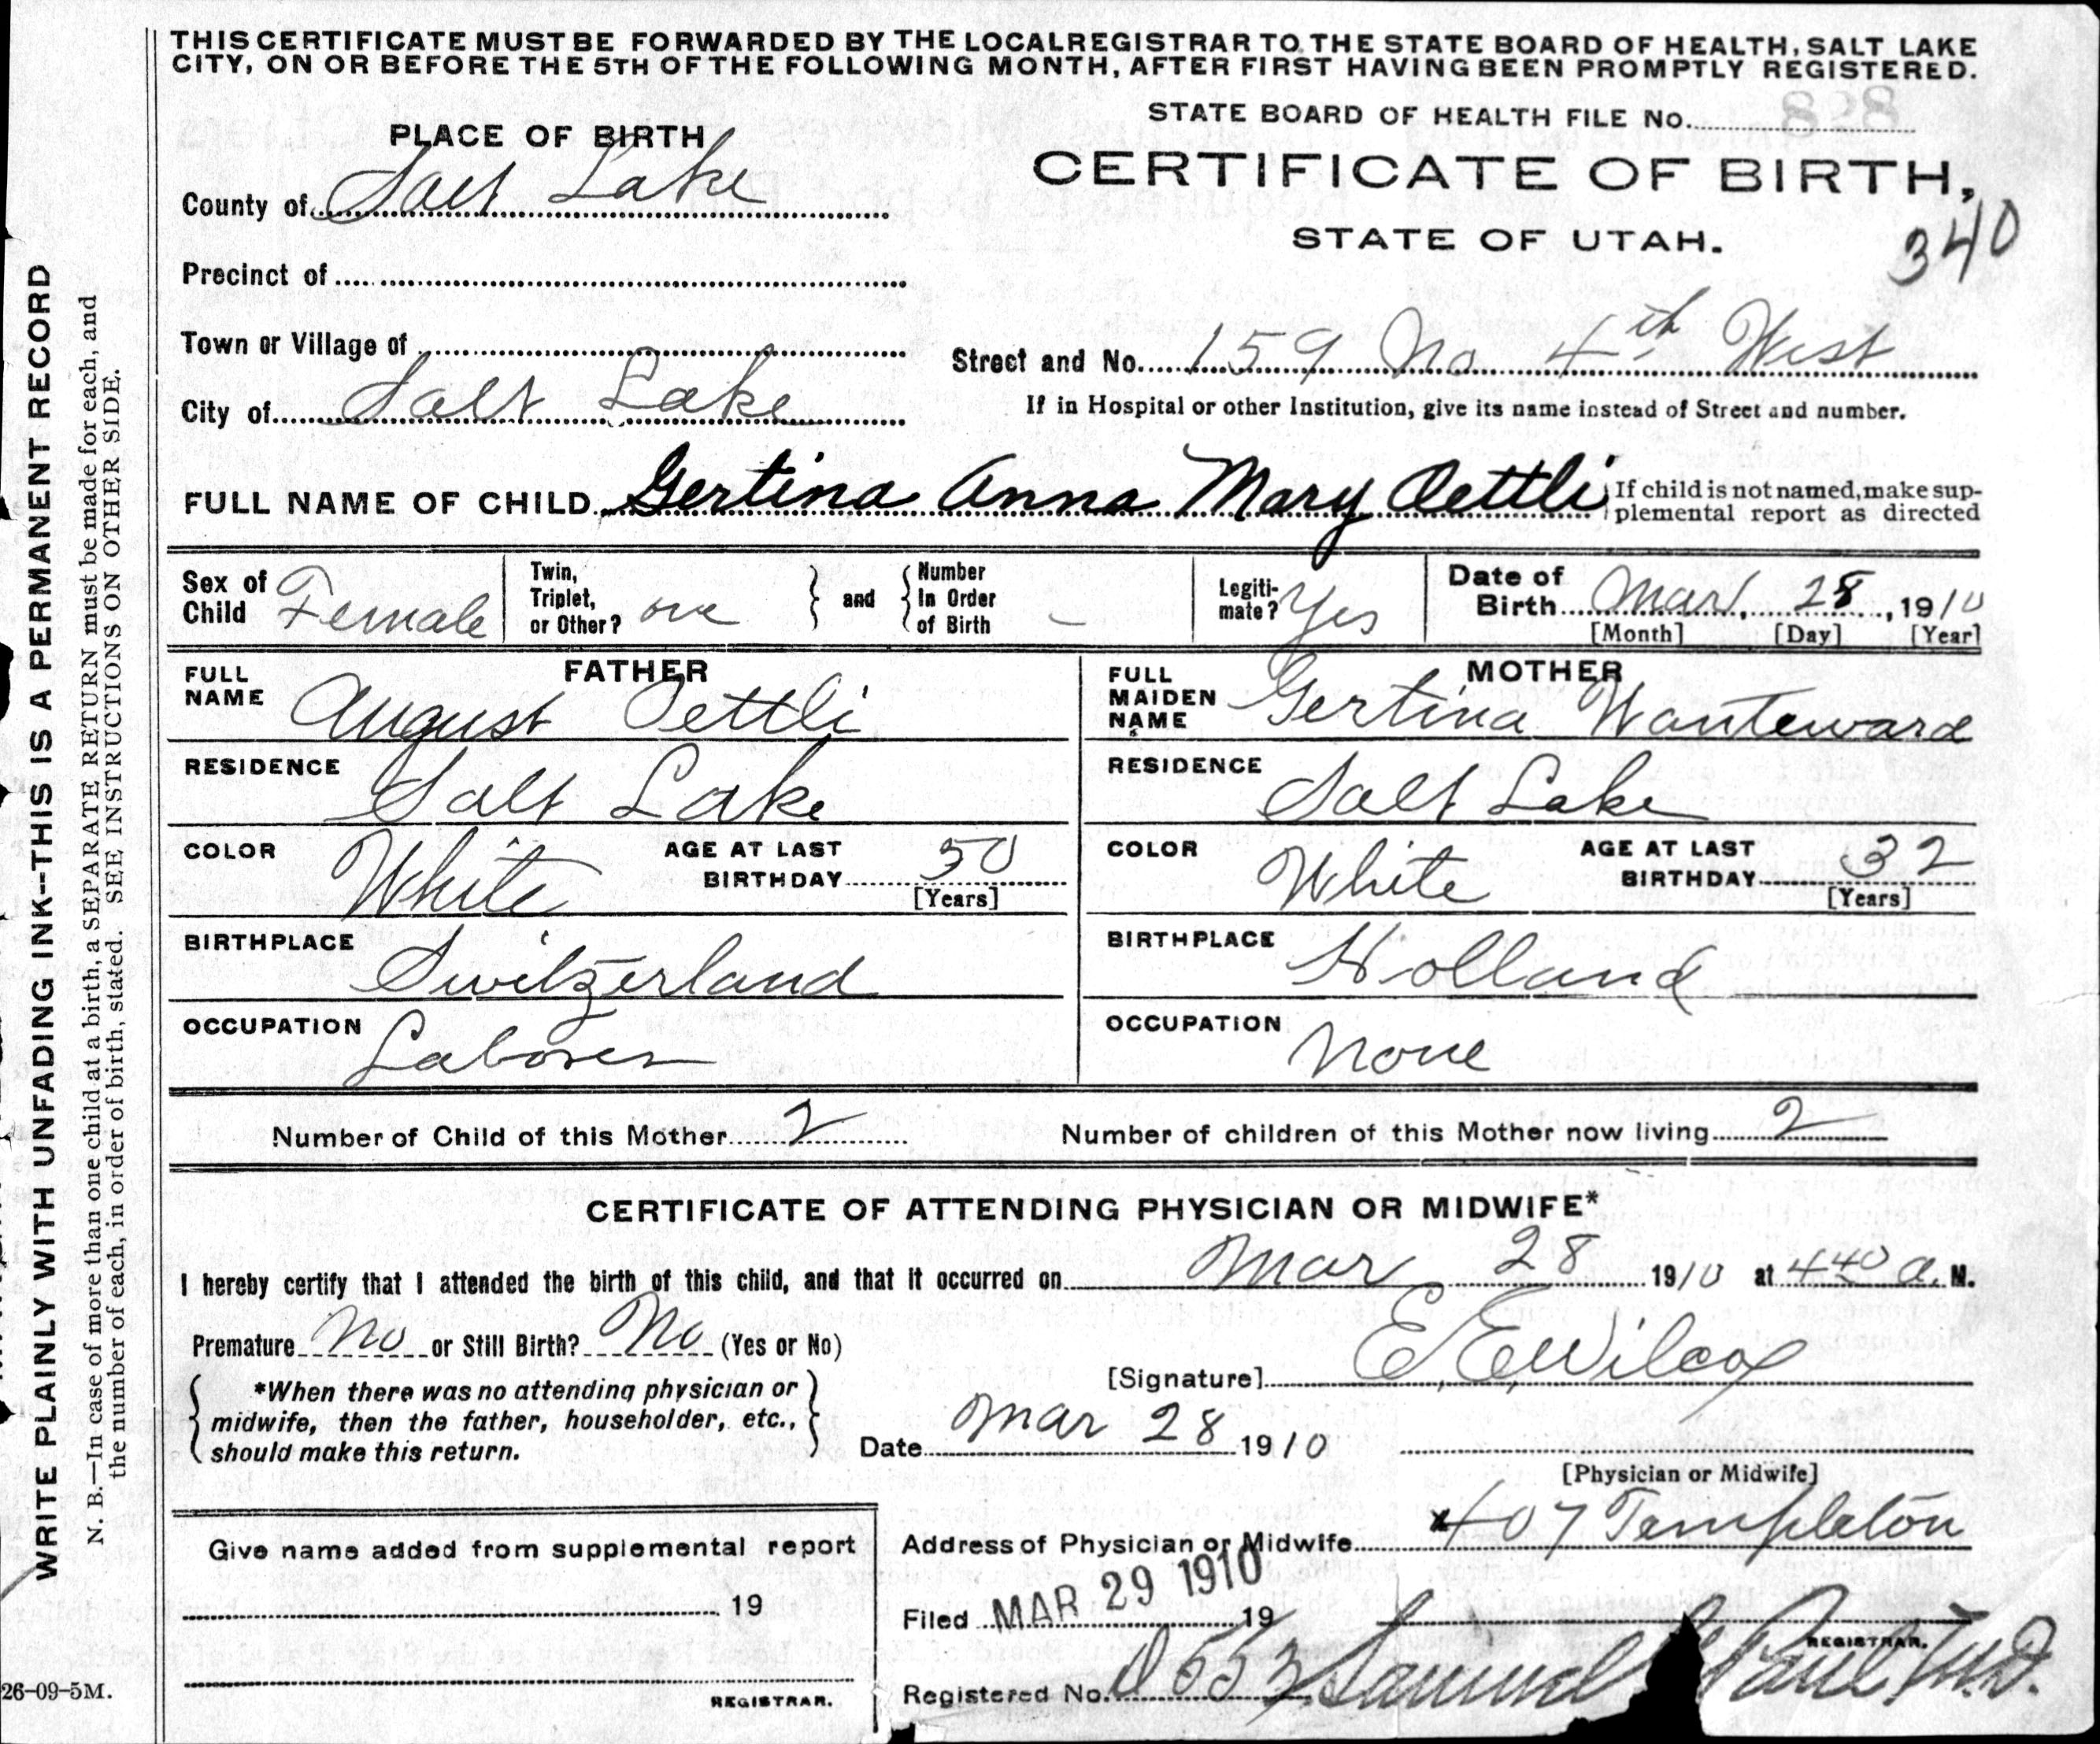 THIS CERTIFICATE MUST BE FORWARDED BY THE LOCAL REGISTRAR TO THE STATE BOARD OF HEALTH, SALT LAKE
CITY, ON OR BEFORE THE 5TH OF THE FOLLOWING MONTH, AFTER FIRST HAVING BEEN PROMPTLY REGISTERED.
STATE BOARD OF HEALTH FILE No. 828
PLACE OF BIRTH
CERTIFICATE OF BIRTH,
County of Salt Lake
STATE OF UTAH.
340
Precinct of
Town or Village of
Street and No. 159 No 4th West
City of Salt Lake
If in Hospital or other Institution, give its name instead of Street and number.
FULL NAME OF CHILD Gertina Anna Mary Oettli
If child is not named, make sup-
plemental report as directed
Sex of Child Female
Twin, Triplet, or Other? one
and
Number In Order of Birth -
Legiti-mate? Yes
Date of Birth Mar, 28, 1910
[Month] [Day] [Year]
FATHER
FULL NAME August Oettli
RESIDENCE Salt Lake
COLOR White AGE AT LAST BIRTHDAY 30
[Years]
BIRTHPLACE Switzerland
OCCUPATION Laborer
MOTHER
FULL MAIDEN NAME Gertina Wanteward
RESIDENCE Salt Lake
COLOR White AGE AT LAST BIRTHDAY 32
[Years]
BIRTHPLACE Holland
OCCUPATION None
Number of Child of this Mother 2
Number of children of this Mother now living 2
CERTIFICATE OF ATTENDING PHYSICIAN OR MIDWIFE*
I hereby certify that I attended the birth of this child, and that it occurred on Mar 28 1910 at 440 a. M.
Premature No or Still Birth? No (Yes or No)
*When there was no attending physician or
midwife, then the father, householder, etc.,
should make this return.
[Signature] E. E. Wilcox
Date Mar 28 1910
[Physician or Midwife]
Address of Physician or Midwife 407 Templeton
Give name added from supplemental report
19
REGISTRAR.
Filed MAR 29 1910 19
REGISTRAR.
Registered No. D 553 Samuel G Paul M.D.
26-09-5M.
WRITE PLAINLY WITH UNFADING INK--THIS IS A PERMANENT RECORD
N. B.—In case of more than one child at a birth, a SEPARATE RETURN must be made for each, and
the number of each, in order of birth, stated. SEE INSTRUCTIONS ON OTHER SIDE.